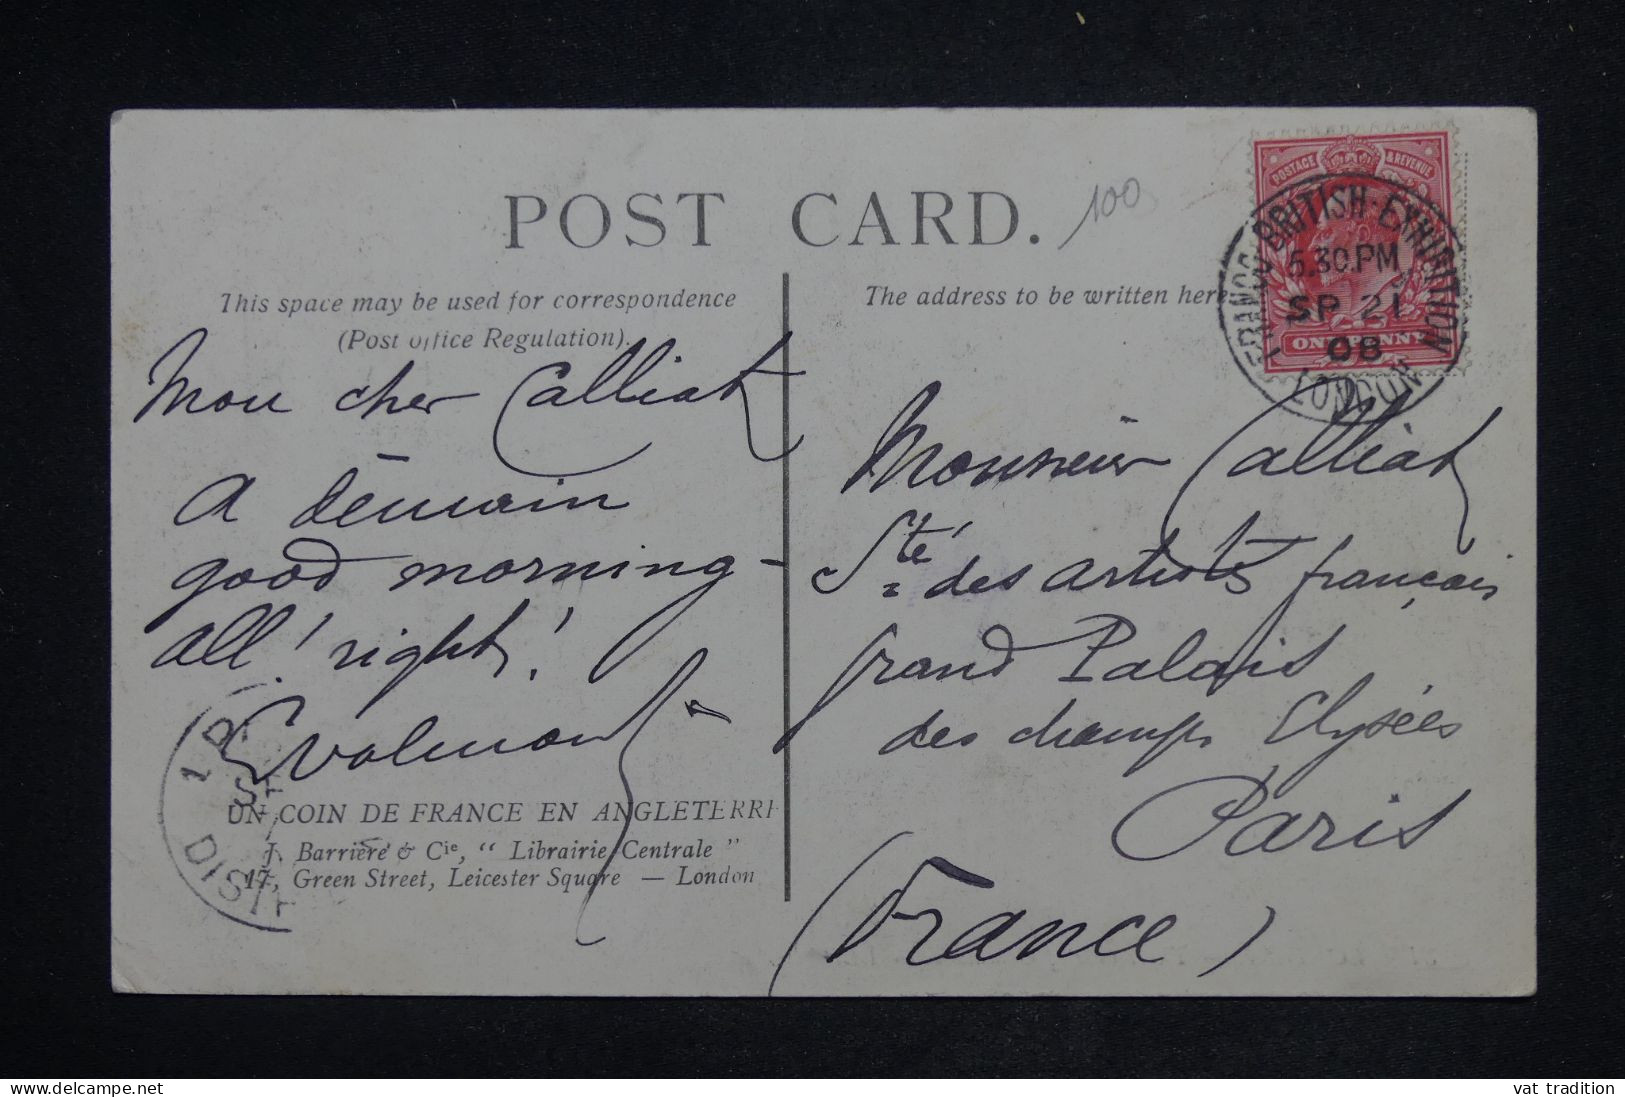 POST CARD.
100
This space may be used for correspondence
(Post office Regulation).
The address to be written here
POSTAGE & REVENUE
ONE PENNY
FRANCO BRITISH·EXHIBITION
5.30.PM
SP 21
08
LONDON
Mon cher Calliat
A demain
good morning -
all! right!
Monsieur Calliat
Sté des artistes français
grand Palais
des champs Elysées
Paris
(France)
DIST
UN COIN DE FRANCE EN ANGLETERRE
J. Barrière & Cie, " Librairie Centrale "
17, Green Street, Leicester Square — London
delcampe.net
vat tradition